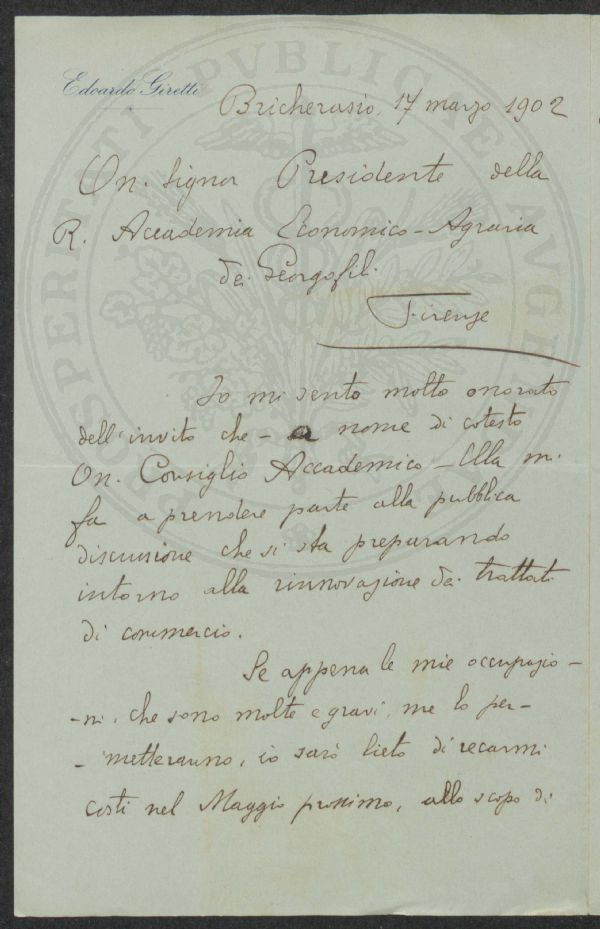 PROSPERITATI PVBLICAE AVGENDAE
Edoardo Giretti
Bricherasio, 17 marzo 1902
On. Signor Presidente della
R. Accademia Economico-Agraria
dei Georgofili.
Firenze
Io mi sento molto onorato
dell'invito che - a nome di cotesto
On. Consiglio Accademico - Ella mi
fa a prendere parte alla pubblica
discussione che si sta preparando
intorno alla rinnovazione dei trattati
di commercio.
Se appena le mie occupazio-
-ni, che sono molte e gravi, me lo per-
-metteranno, io sarò lieto di recarmi
costì nel Maggio prossimo, allo scopo di